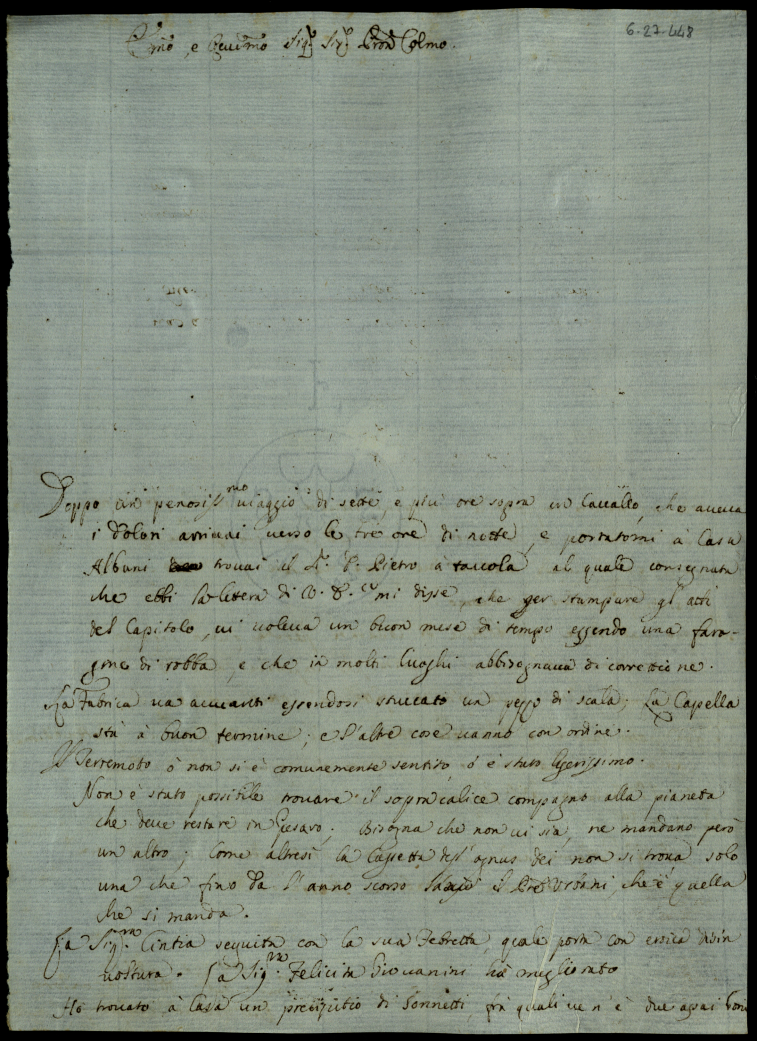 6-27-448
e Sig.r Sig.r Pron Colmo.
Doppo un penosiss.mo viaggio di sette, e più ore sopra un Cavallo, che aveva
i dolori arrivai verso le tre ore di notte, e portatomi à Casa
Albani trovai il S.r D. Pietro à tavola al quale consegnata
che ebbi la lettera di V. S. mi disse, che per stampare gl'atti
del Capitolo, vi voleva un buon mese di tempo essendo una fara-
gine di robba, e che in molti luoghi abbisognava di correttione.
La Fabrica va avvanti essendosi stuccato un pezzo di scala; La Capella
stà à buon termine; e l'altre cose vanno con ordine.
Il Terremoto ò non si è comunemente sentito, ò è stato legerissimo.
Non è stato possibile trovare il sopracalice compagno alla pianeta
che deve restare in Pesaro; Bisogna che non vi sia, ne mandano però
un altro; Come altresì la Cassetta degl'agnus dei non si trova, solo
una che fino da l'anno scorso il Urbani, che è quella
che si manda.
La Sig.ra Cintia seguita con la sua Febretta, quale porta con eroica disin
voltura. La Sig.ra Felicita Giovanini hà migliorato
Hò trovato à Casa un precipitio di Sonnetti, frà quali ve n'è due assai boni